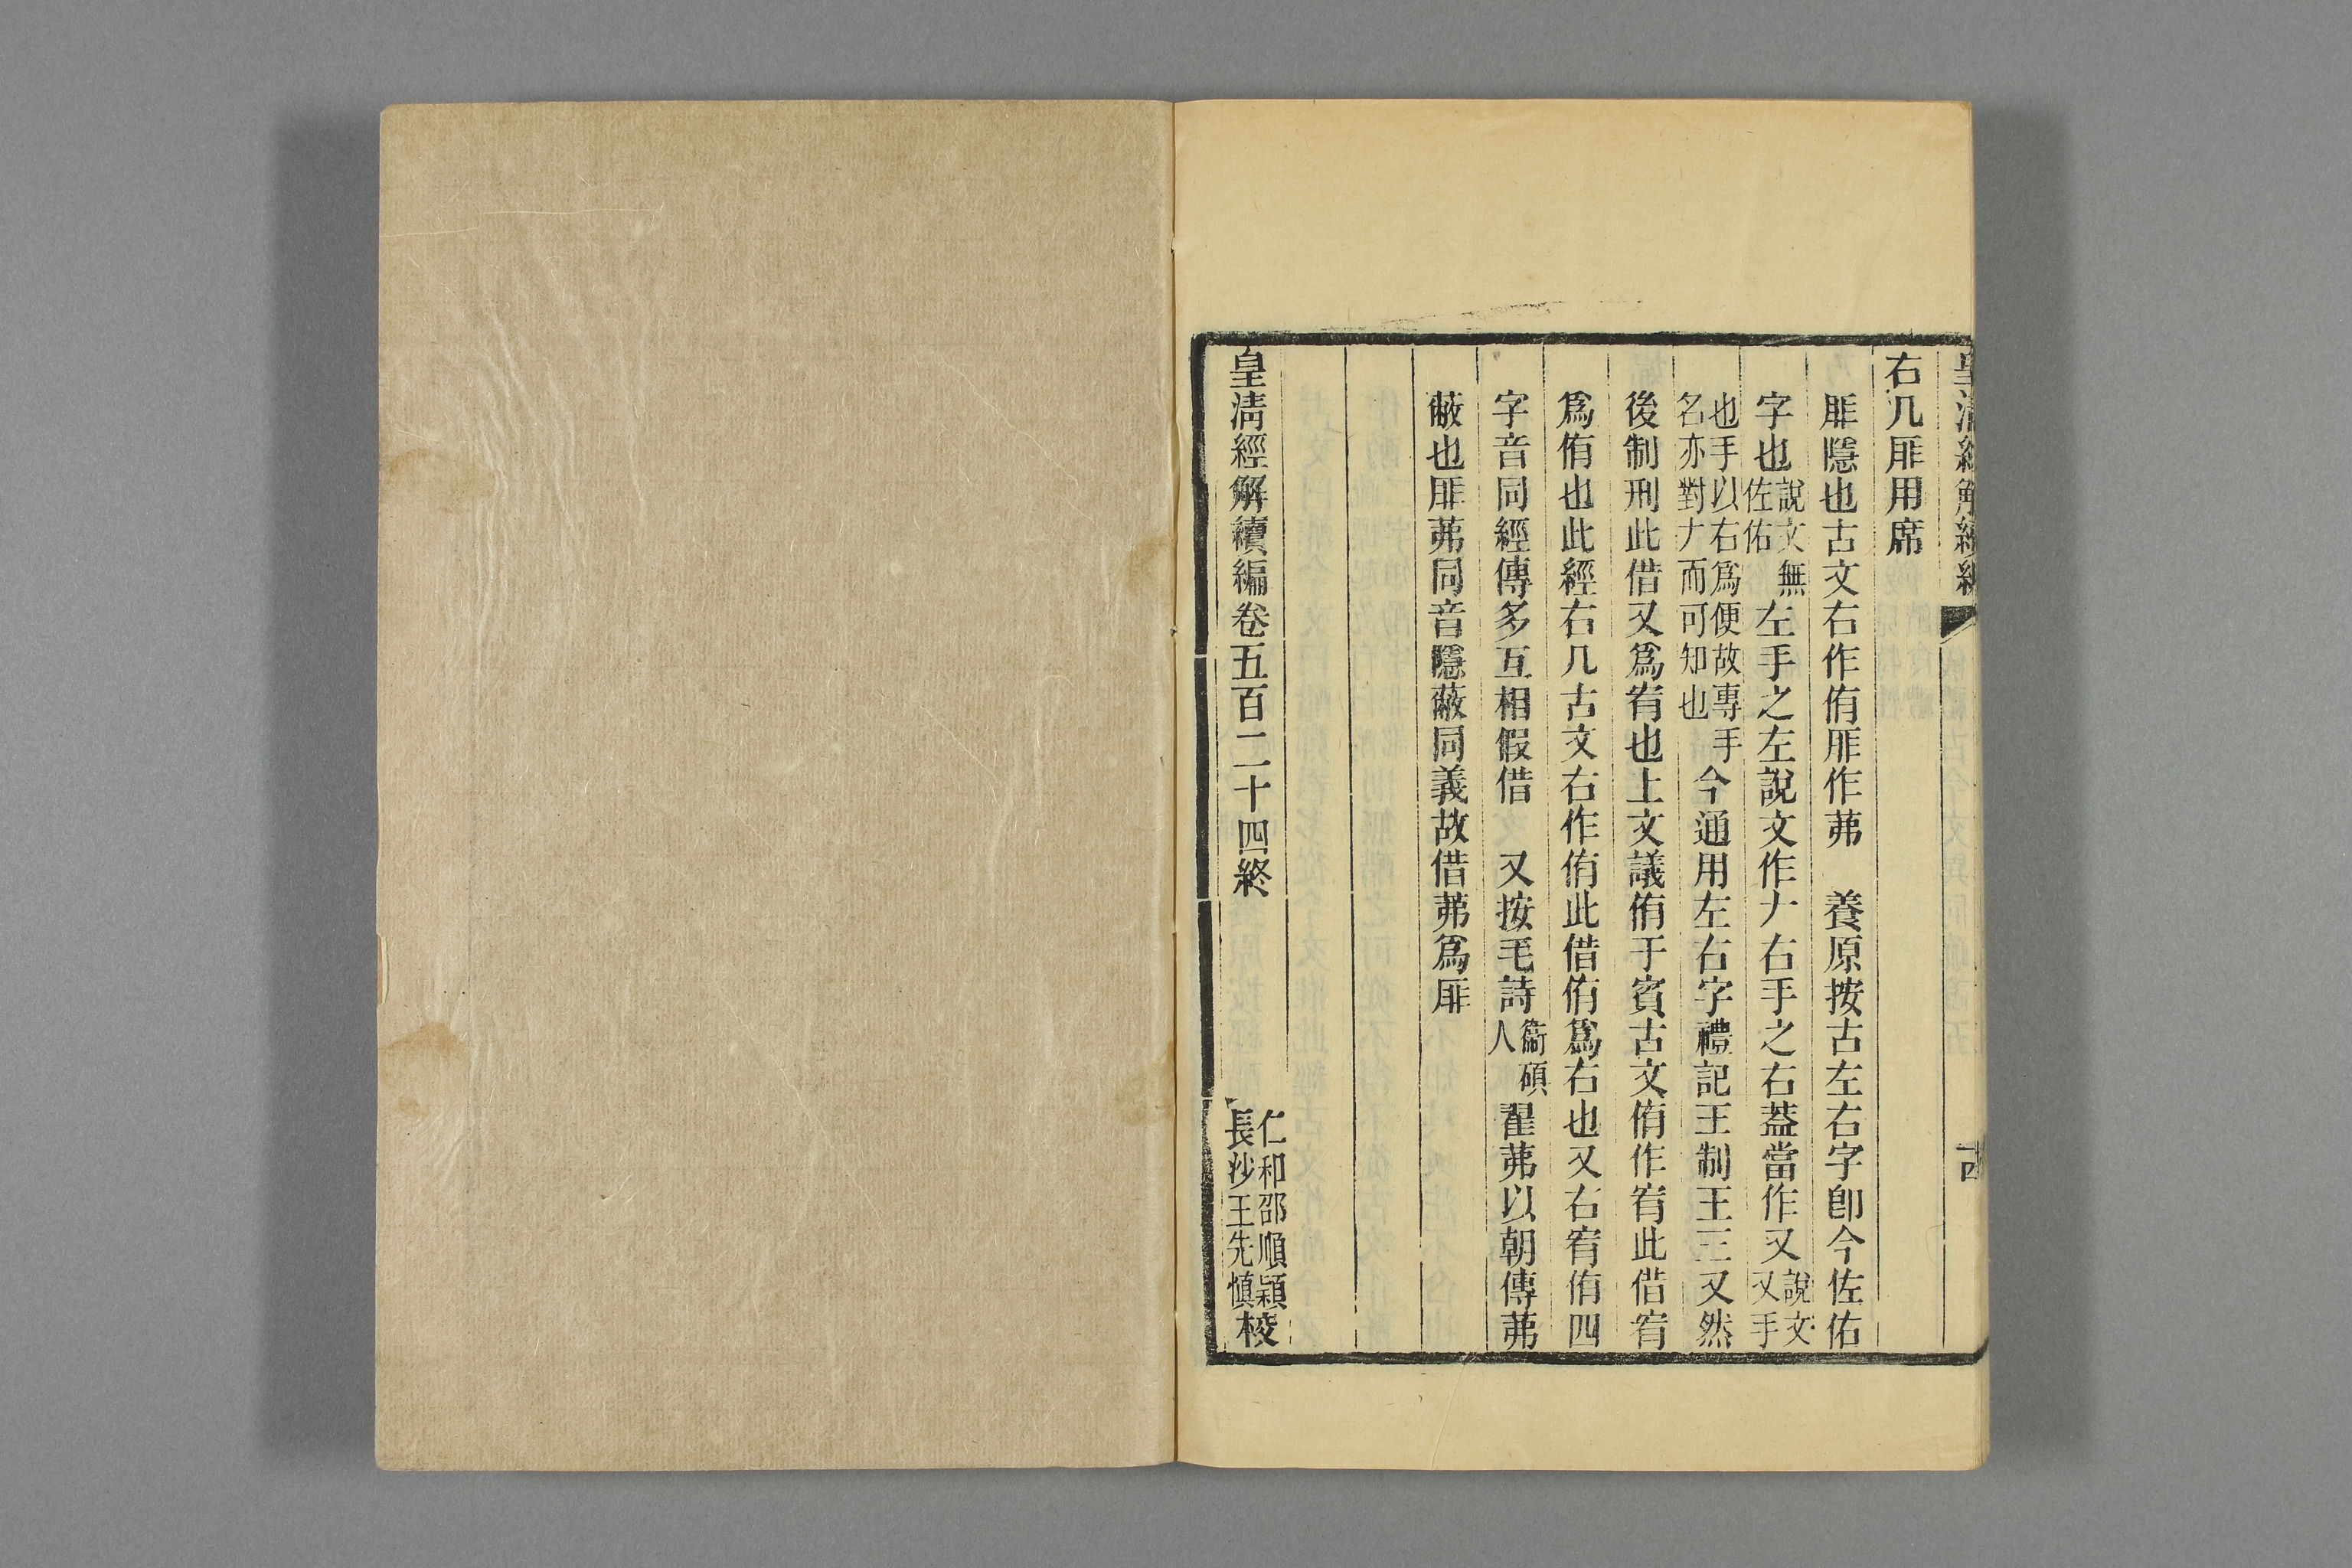 皇清經解續編 十四
右几厞用席
厞隱也古文右作侑厞作茀　養原按古左右字卽今佐佑
字也說文無佐佑左手之左說文作𠂇右手之右葢當作又說文又手
也手以右爲便故專手名亦對𠂇而可知也今通用左右字禮記王制王三又然
後制刑此借又爲宥也上文議侑于賓古文侑作宥此借宥
爲侑也此經右几古文右作侑此借侑爲右也又右宥侑四
字音同經傳多互相假借　又按毛詩衞碩人翟茀以朝傳茀
蔽也厞茀同音隱蔽同義故借茀爲厞
皇淸經解續編卷五百二十四終
仁和邵順穎
長沙王先愼校